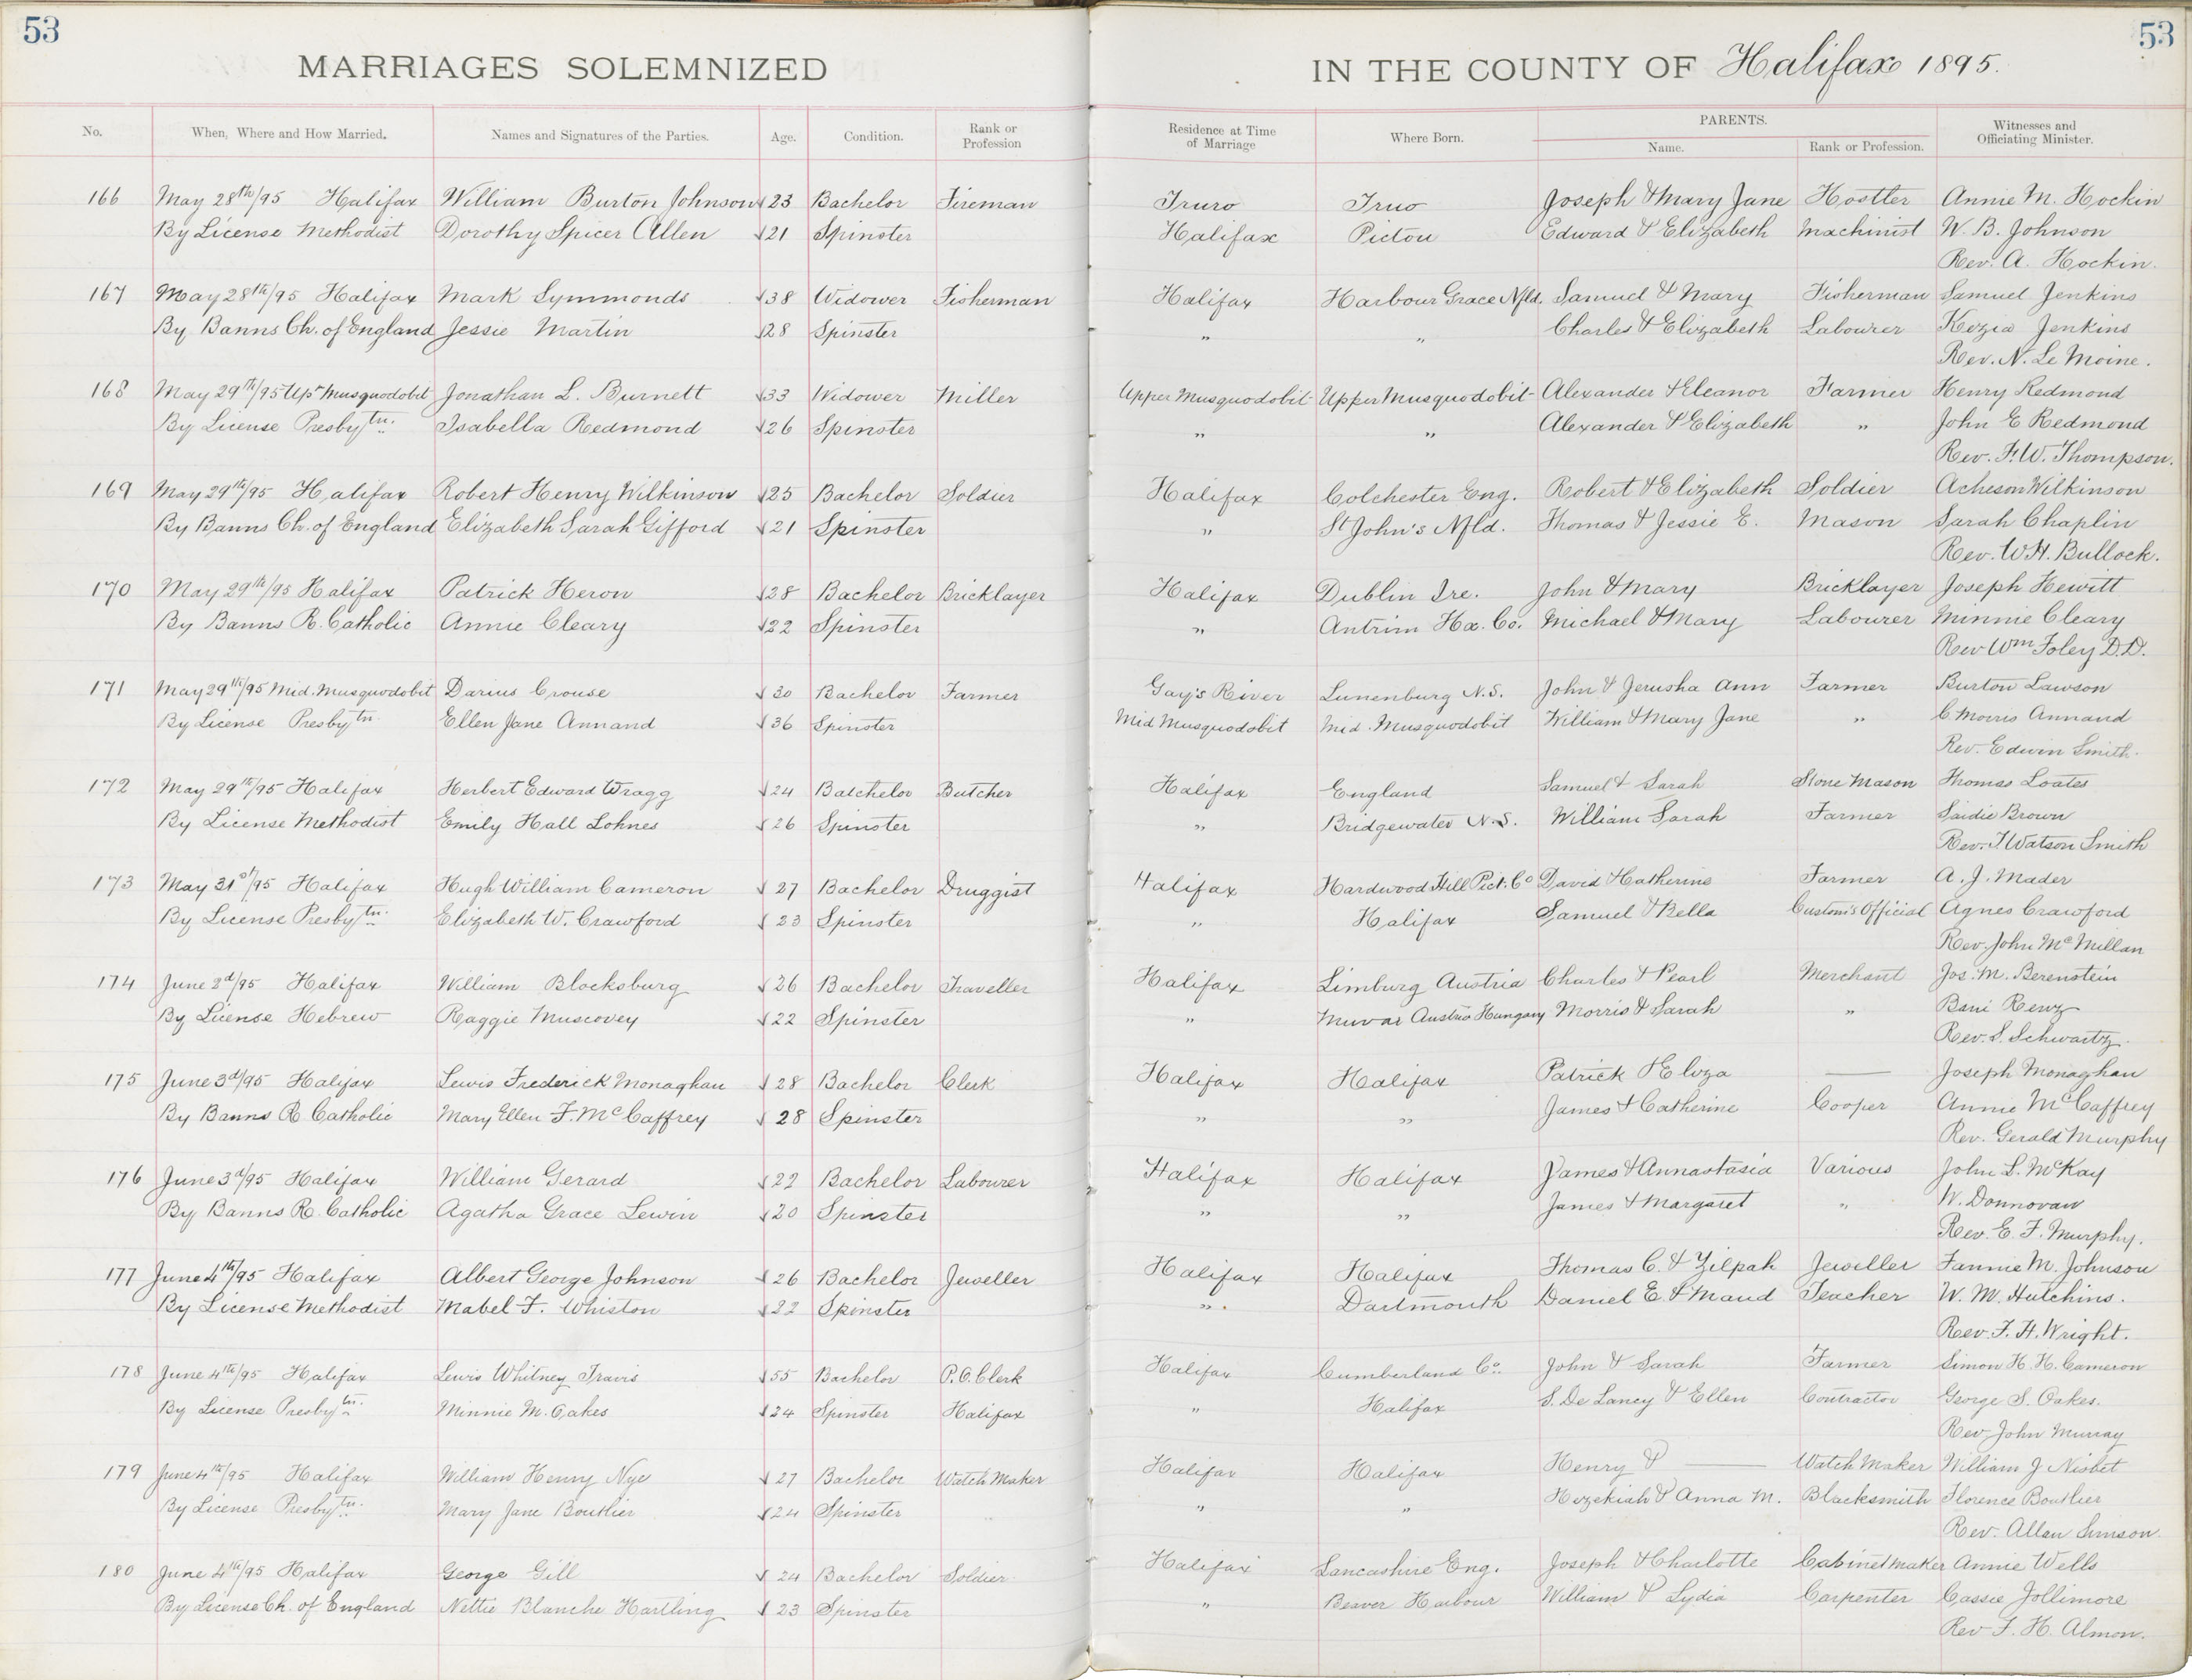 53
53
MARRIAGES SOLEMNIZED IN THE COUNTY OF Halifax 1895.
No. When, Where and How Married. Names and Signatures of the Parties. Age. Condition. Rank or Profession Residence at Time of Marriage Where Born. PARENTS. Name. Rank or Profession. Witnesses and Officiating Minister.
166 May 28th/95 Halifax William Burton Johnson 23 Bachelor Fireman Truro Truo Joseph & Mary Jane Hostler Annie M. Hockin
By License Methodist Dorothy Spicer Allen 21 Spinster Halifax Pictou Edward & Elizabeth Machinist W. B. Johnson
Rev. A. Hockin.
167 May 28th/95 Halifax Mark Symmonds 38 Widower Fisherman Halifax Harbour Grace Nfld. Samuel & Mary Fisherman Samuel Jenkins
By Banns Ch. of England Jessie Martin 28 Spinster " " Charles & Elizabeth Labourer Kezia Jenkins
Rev. N. Le Moine.
168 May 29th/95 Upr Musquodobit Jonathan L. Burnett 33 Widower Miller Upper Musquodobit Upper Musquodobit Alexander & Eleanor Farmer Henry Redmond
By License Presbytn. Isabella Redmond 26 Spinster " " Alexander & Elizabeth " John E Redmond
Rev. F. W. Thompson.
169 May 29th/95 Halifax Robert Henry Wilkinson 25 Bachelor Soldier Halifax Colchester Eng. Robert & Elizabeth Soldier Acheson Wilkinson
By Banns Ch. of England Elizabeth Sarah Gifford 21 Spinster " St John's Nfld. Thomas & Jessie E. Mason Sarah Chaplin
Rev. W. H. Bullock.
170 May 29th/95 Halifax Patrick Heron 28 Bachelor Bricklayer Halifax Dublin Ire. John & Mary Bricklayer Joseph Hewitt
By Banns R. Catholic Annie Cleary 22 Spinster " Antrim Hx. Co. Michael & Mary Labourer Minnie Cleary
Rev Wm Foley D.D.
171 May 29th/95 Mid. Musquodobit Darius Crouse 30 Bachelor Farmer Gay's River Lunenburg N.S. John & Jerusha Ann Farmer Burton Lawson
By License Presbytn. Ellen Jane Annand 36 Spinster Mid Musquodobit Mid. Musquodobit William & Mary Jane " C. Morris Annand
Rev. Edwin Smith.
172 May 29th/95 Halifax Herbert Edward Wragg 24 Batchelor Butcher Halifax England Samuel & Sarah Stone Mason Thomas Loates
By License Methodist Emily Hall Lohnes 26 Spinster " Bridgewater N.S. William Sarah Farmer Saidie Brown
Rev. T Watson Smith
173 May 31st/95 Halifax Hugh William Cameron 27 Bachelor Druggist Halifax Hardwood Hill Pict. Co David & Catherine Farmer A. J. Mader
By License Presbytn. Elizabeth W. Crawford 23 Spinster " Halifax Samuel & Bella Custom's Official Agnes Crawford
Rev. John McMillan
174 June 2d/95 Halifax William Blocksburg 26 Bachelor Traveller Halifax Limburg Austria Charles & Pearl Merchant Jos. M. Berenstein
By License Hebrew Raggie Muscovey 22 Spinster " Austria Hungary Morris & Sarah "
Rev. S. Schwartz.
175 June 3d/95 Halifax Lewis Frederick Monaghan 28 Bachelor Clerk Halifax Halifax Patrick & Eliza — Joseph Monaghan
By Banns R Catholic Mary Ellen F. McCaffrey 28 Spinster " " James & Catherine Cooper Annie McCaffrey
Rev. Gerald Murphy
176 June 3d/95 Halifax William Gerard 22 Bachelor Labourer Halifax Halifax James & Annastasia Various John S. McKay
By Banns R. Catholic Agatha Grace Lewin 20 Spinster " " James & Margaret " W. Donnovan
Rev. E. F. Murphy.
177 June 4th/95 Halifax Albert George Johnson 26 Bachelor Jeweller Halifax Halifax Thomas C. & Zilpah Jeweller Fannie M. Johnson
By License Methodist Mabel F. Whiston 22 Spinster " Dartmouth Daniel E. & Maud Teacher W. M. Hutchins.
Rev. F. H. Wright.
178 June 4th/95 Halifax Lewis Whitney Travis 55 Bachelor P.O. Clerk Halifax Cumberland Co. John & Sarah Farmer Simon H. H. Cameron
By License Presbytn. Minnie M. Oakes 24 Spinster Halifax " Halifax S. De Lancy & Ellen Contractor George S. Oakes.
Rev John Murray
179 June 4th/95 Halifax William Henry Nye 27 Bachelor Watch Maker Halifax Halifax Henry & — Watch Maker William J Nisbet
By License Presbytn. Mary Jane Boutlier 24 Spinster " " Hezekiah & Anna M. Blacksmith Florence Boutlier
Rev. Allan Simson.
180 June 4th/95 Halifax George Gill 24 Bachelor Soldier Halifax Lancashire Eng. Joseph & Charlotte Cabinetmaker Annie Wells
By License Ch. of England Nettie Blanche Hartling 23 Spinster " Beaver Harbour William & Lydia Carpenter Cassie Jollimore
Rev F. H. Almon.